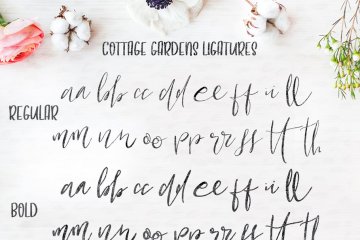 COTTAGE GARDENS LIGATURES
REGULAR
aa bb cc dd ee ff ii ll
mm nn oo pp rr ss tt th
BOLD
aa bb cc dd ee ff ii ll
mm nn oo pp rr ss tt th